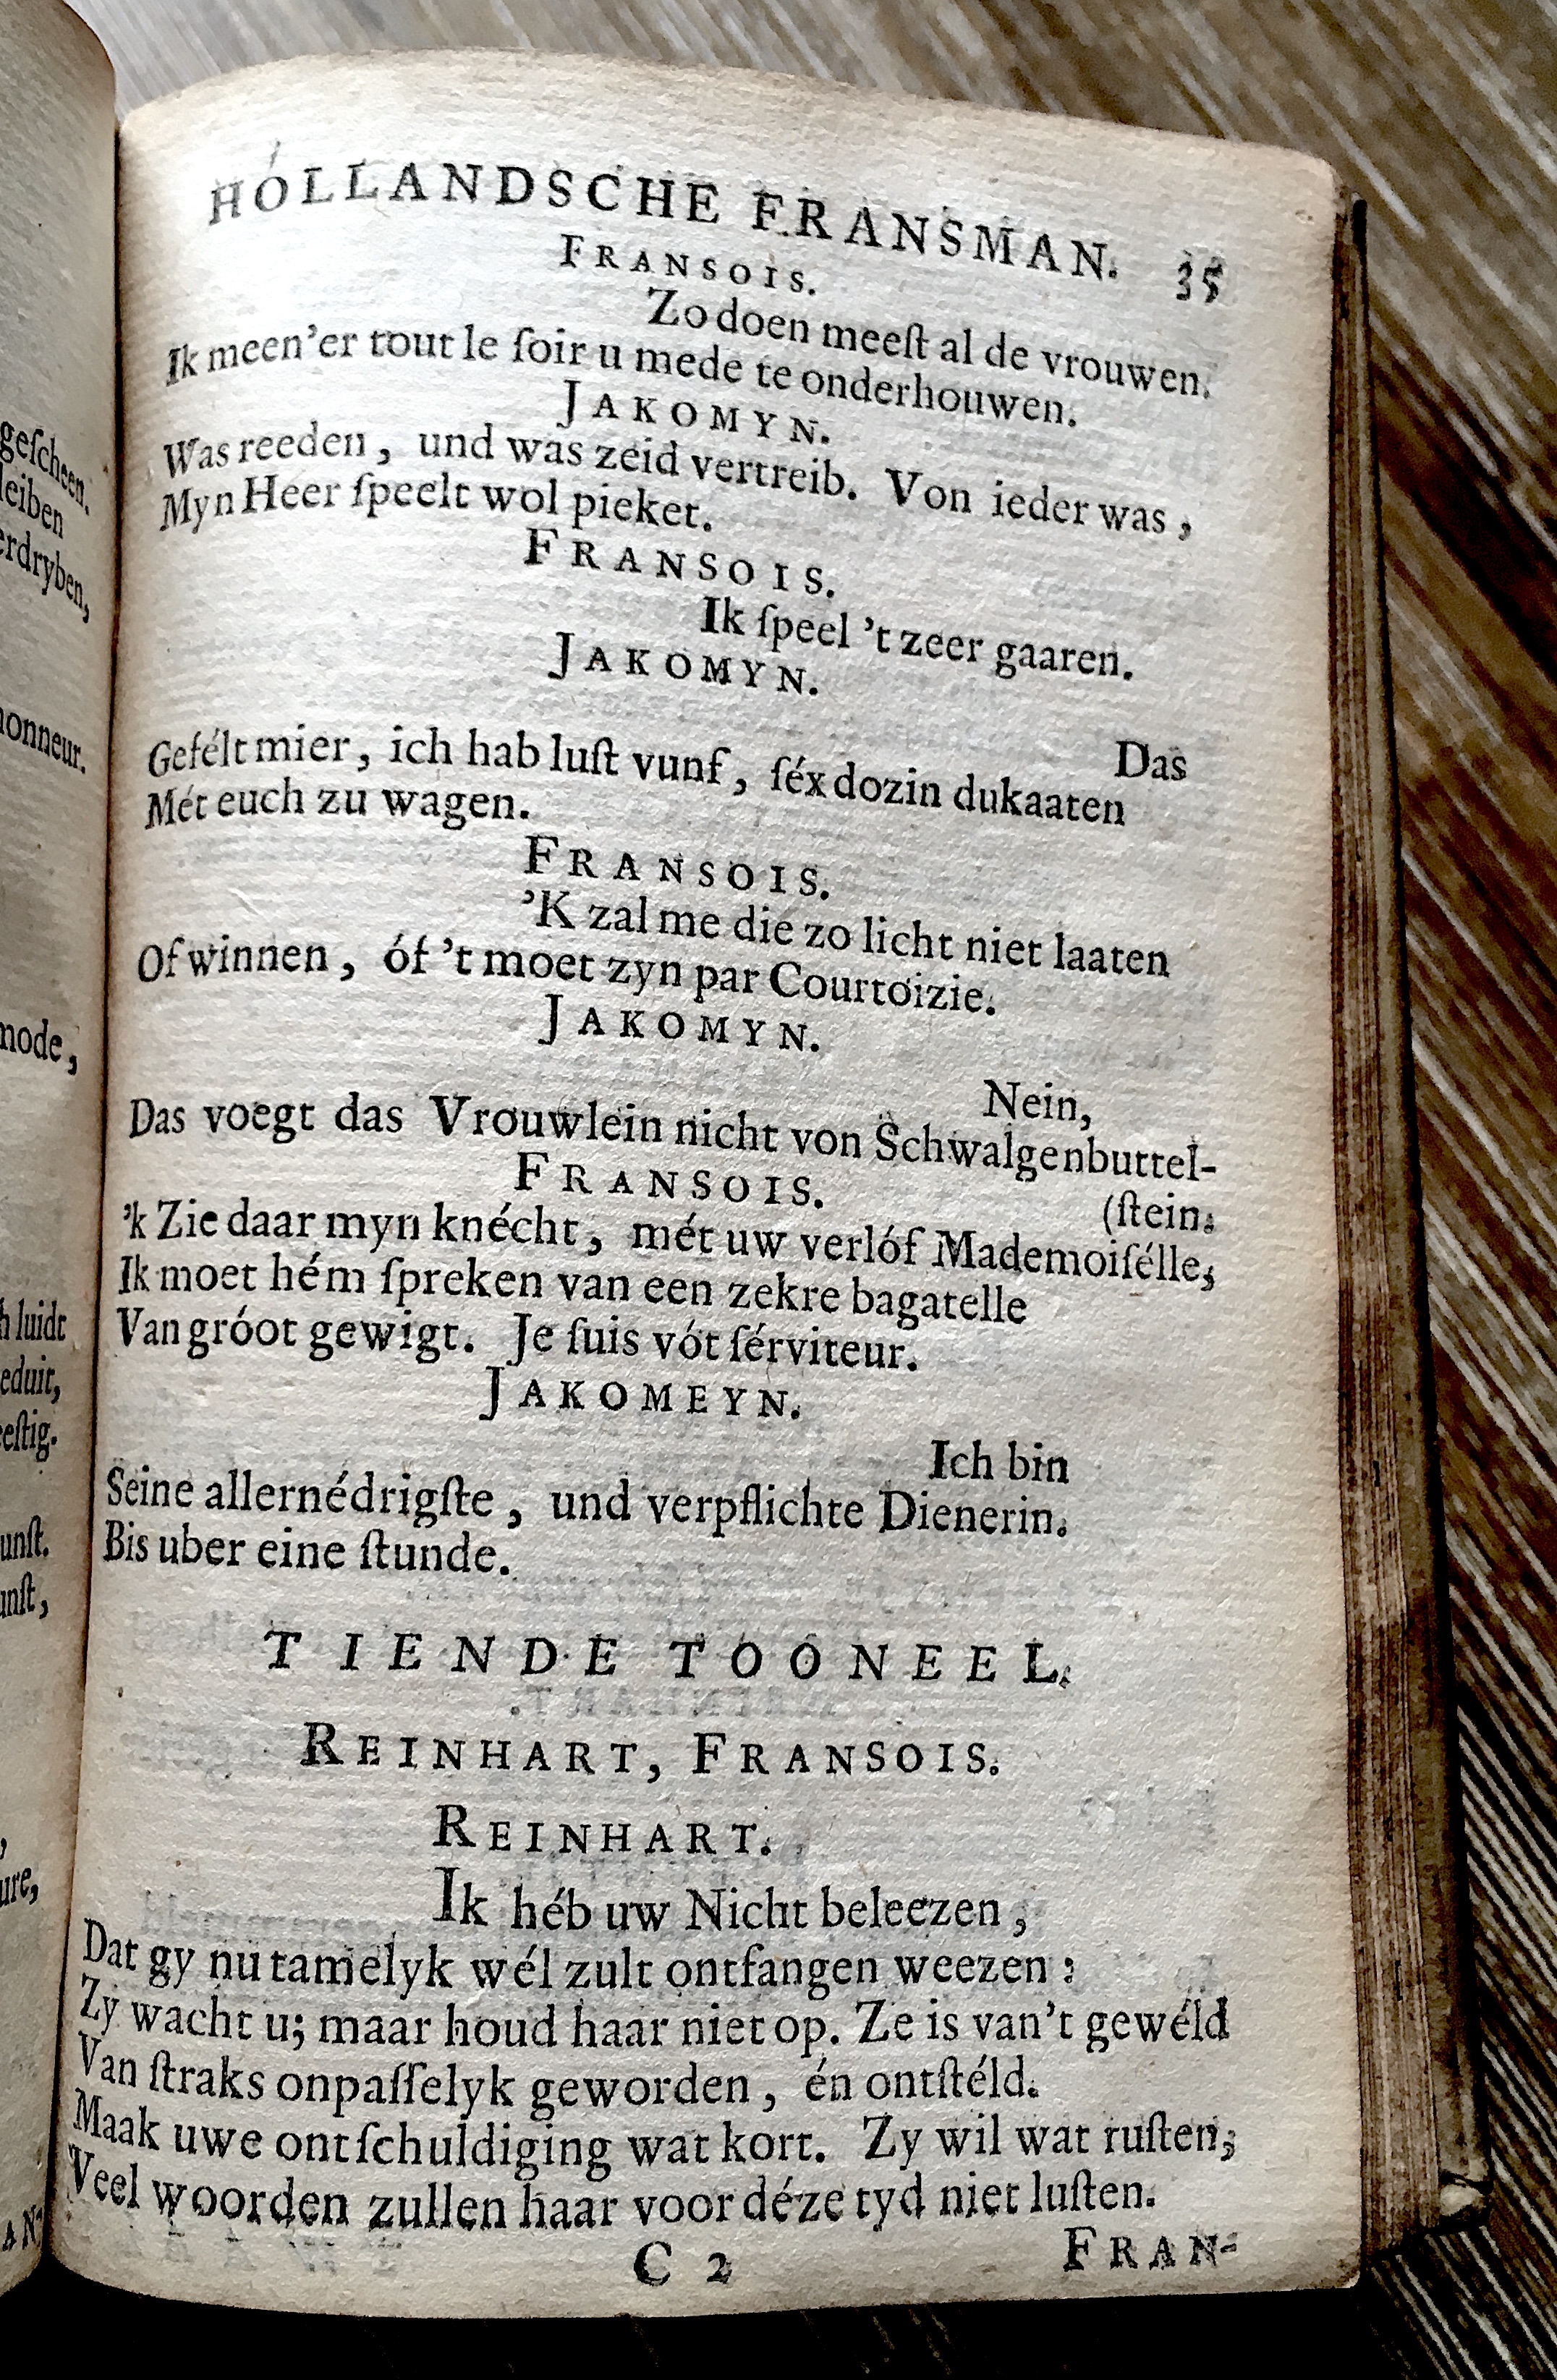 geſcheen.
leiben
erdryben,
honneur.
mode,
luidt
eduit,
eeſtig.
unſt.
unſt,
ure,
AN
HÓLLANDSCHE FRANSMAN. 35
FRANSOIS.
Zo doen meeſt al de vrouwen.
Ik meen'er tout le ſoir u mede te onderhouwen.
JAKOMYN.
Was reeden, und was zeid vertreib. Von ieder was,
Myn Heer ſpeelt wol pieket.
FRANSOIS.
Ik ſpeel 't zeer gaaren.
JAKOMYN.
Das
Gefélt mier, ich hab luſt vunf, ſéx dozin dukaaten
Mét euch zu wagen.
FRANSOIS.
'K zal me die zo licht niet laaten
Of winnen, óf 't moet zyn par Courtoizie.
JAKOMYN.
Nein,
Das voegt das Vrouwlein nicht von Schwalgenbuttel-
(ſtein.
FRANSOIS.
'k Zie daar myn knécht, mét uw verlóf Mademoiſélle,
Ik moet hém ſpreken van een zekre bagatelle
Van gróot gewigt. Je ſuis vót ſérviteur.
JAKOMEYN.
Ich bin
Seine allernédrigſte, und verpflichte Dienerin.
Bis uber eine ſtunde.
TIENDE TOONEEL.
REINHART, FRANSOIS.
REINHART.
Ik héb uw Nicht beleezen,
Dat gy nu tamelyk wél zult ontfangen weezen:
Zy wacht u; maar houd haar niet op. Ze is van't gewéld
Van ſtraks onpaſſelyk geworden, én ontſtéld.
Maak uwe ontſchuldiging wat kort. Zy wil wat ruſten;
Veel woorden zullen haar voor déze tyd niet luſten.
C 2 FRAN-